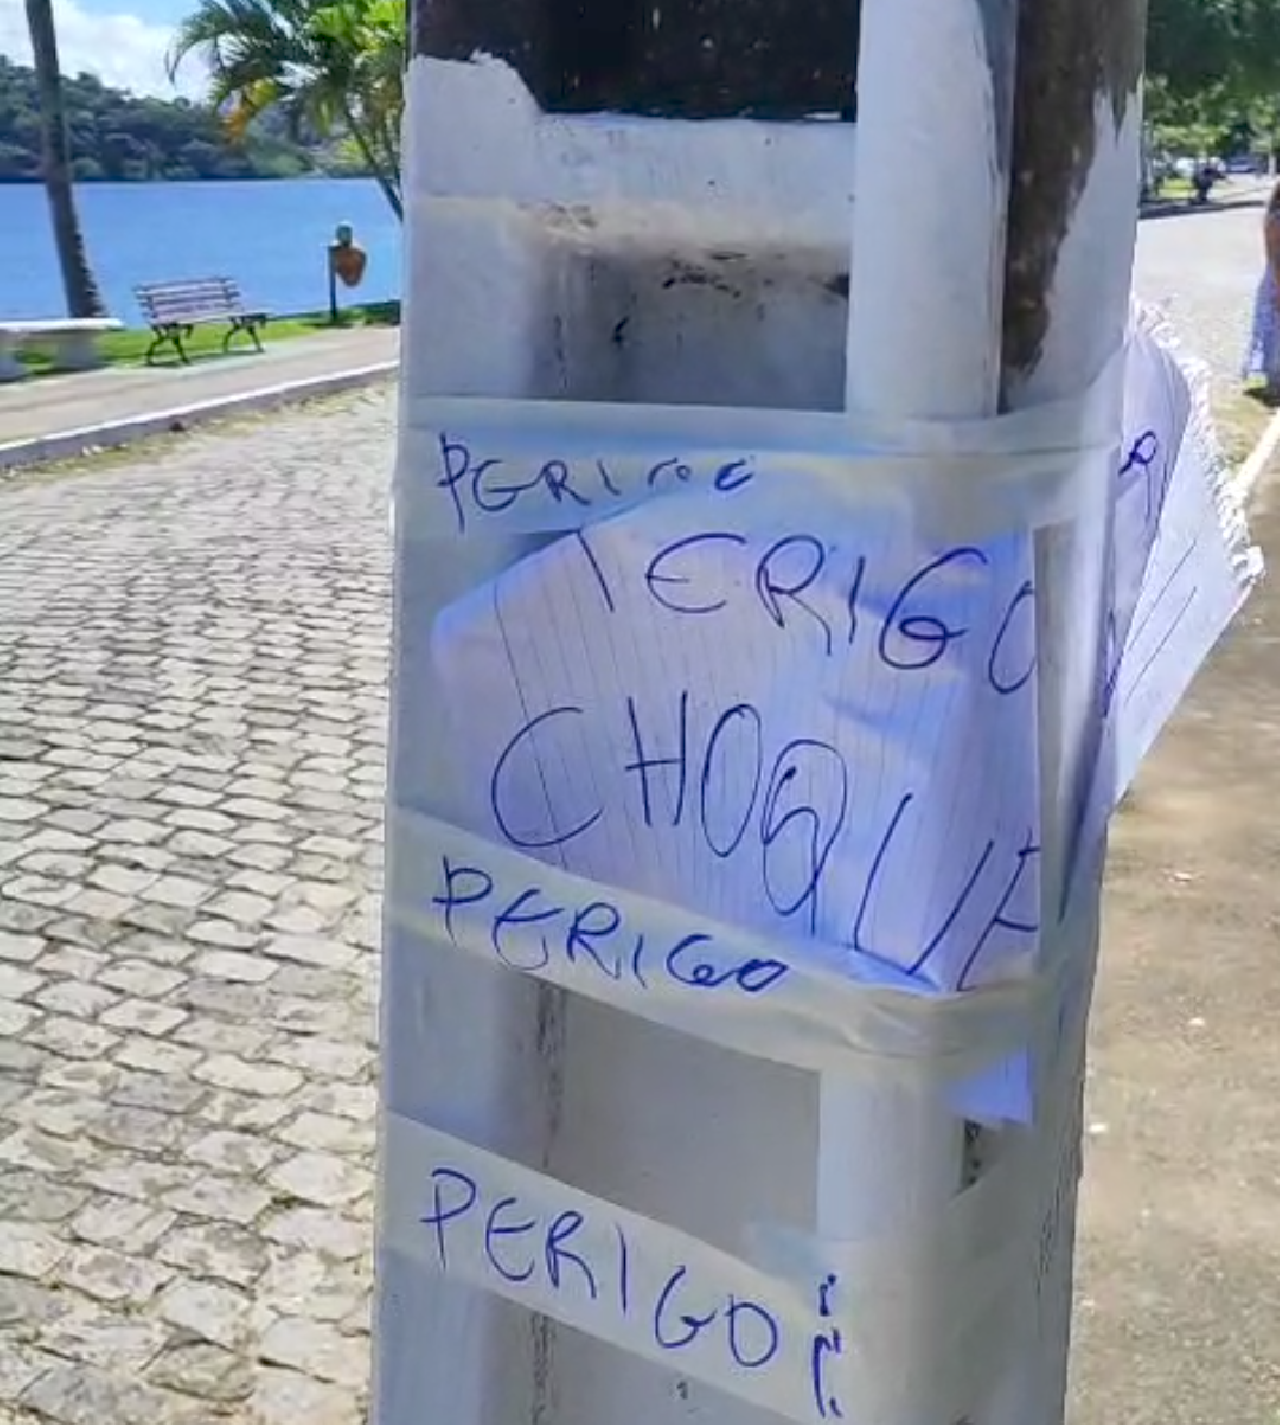 PERIGO
PERIGO
CHOQUE
PERIGO
PERIGO